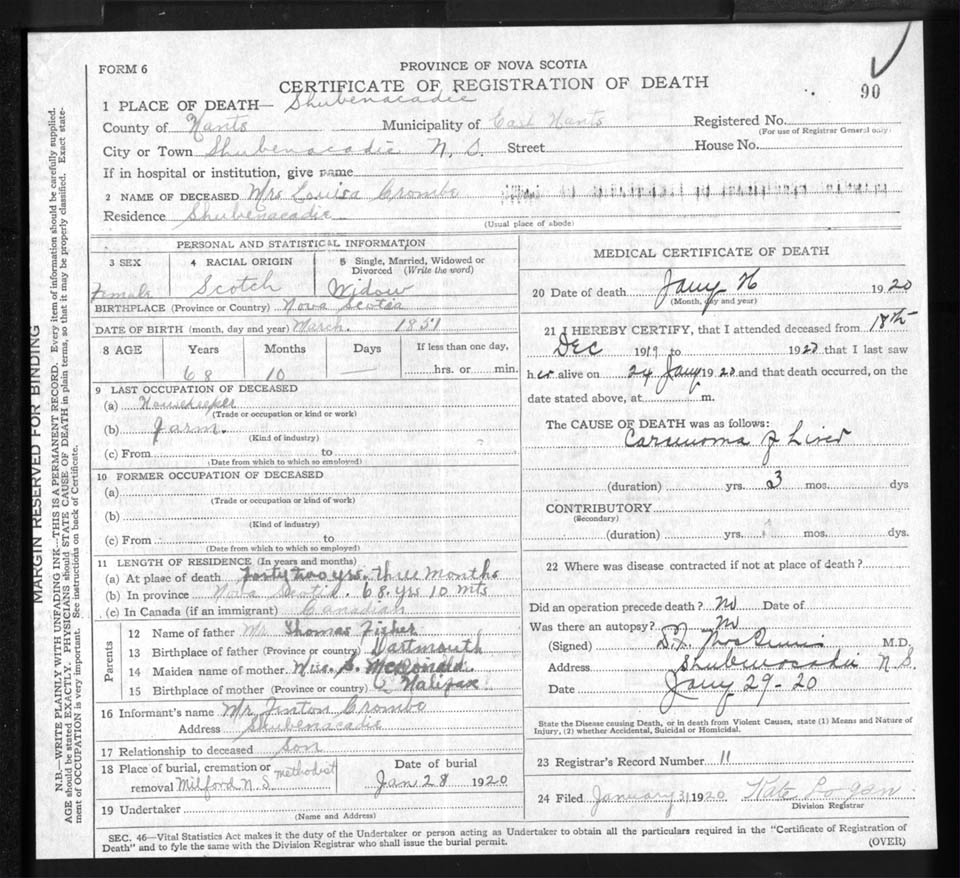 FORM 6
PROVINCE OF NOVA SCOTIA
CERTIFICATE OF REGISTRATION OF DEATH
90
1 PLACE OF DEATH— Shubenacadie
County of Hants Municipality of East Hants Registered No.
(For use of Registrar General only)
City or Town Shubenacadie N. S. Street House No.
If in hospital or institution, give name
2 NAME OF DECEASED Mrs Louisa Crombe
Residence Shubenacadie
(Usual place of abode)
PERSONAL AND STATISTICAL INFORMATION
3 SEX 4 RACIAL ORIGIN 5 Single, Married, Widowed or Divorced (Write the word)
Female Scotch Widow
BIRTHPLACE (Province or Country) Nova Scotia
DATE OF BIRTH (month, day and year) March. 1851
8 AGE Years Months Days If less than one day,
68 10 — hrs. or min.
9 LAST OCCUPATION OF DECEASED
(a) Housekeeper
(Trade or occupation or kind or work)
(b) Farm.
(Kind of industry)
(c) From to
(Date from which to which so employed)
10 FORMER OCCUPATION OF DECEASED
(a)
(Trade or occupation or kind of work)
(b)
(Kind of industry)
(c) From to
(Date from which to which so employed)
11 LENGTH OF RESIDENCE (In years and months)
(a) At place of death forty two yrs. three months
(b) In province Nova Scotia. 68. yrs 10 mts
(c) In Canada (if an immigrant) Canadian
Parents
12 Name of father Mr Thomas Fisher
13 Birthplace of father (Province or country) Dartmouth
14 Maiden name of mother Miss. S. McDonald
15 Birthplace of mother (Province or country) Halifax
16 Informant's name Mr Crombe
Address Shubenacadie
17 Relationship to deceased Son
18 Place of burial, cremation or removal Milford N. S methodist
Date of burial
Jan 28 1920
19 Undertaker
(Name and Address)
MEDICAL CERTIFICATE OF DEATH
20 Date of death Jany 1920
(Month, day and year)
21 I HEREBY CERTIFY, that I attended deceased from 18th
Dec 1919 to 1920 that I last saw
her alive on 24 Jany 1920 and that death occurred, on the
date stated above, at m.
The CAUSE OF DEATH was as follows:
Carcinoma of Liver
(duration) yrs. 3 mos. dys
CONTRIBUTORY
(Secondary)
(duration) yrs. mos. dys.
22 Where was disease contracted if not at place of death?
Did an operation precede death? No Date of
Was there an autopsy? No
(Signed) M.D.
Address Shubenacadie N S.
Date Jany 29-20
State the Disease causing Death, or in death from Violent Causes, state (1) Means and Nature of
Injury, (2) whether Accidental, Suicidal or Homicidal.
23 Registrar's Record Number 11
24 Filed January 31 1920 Kate Logan
Division Registrar
SEC. 46—Vital Statistics Act makes it the duty of the Undertaker or person acting as Undertaker to obtain all the particulars required in the "Certificate of Registration of
Death" and to fyle the same with the Division Registrar who shall issue the burial permit.
(OVER)
MARGIN RESERVED FOR BINDING
N.B.—WRITE PLAINLY WITH UNFADING INK—THIS IS A PERMANENT RECORD. Every item of information should be carefully supplied.
AGE should be stated EXACTLY. PHYSICIANS should STATE CAUSE OF DEATH in plain terms, so that it may be properly classified. Exact state-
ment of OCCUPATION is very important. See instructions on back of Certificate.